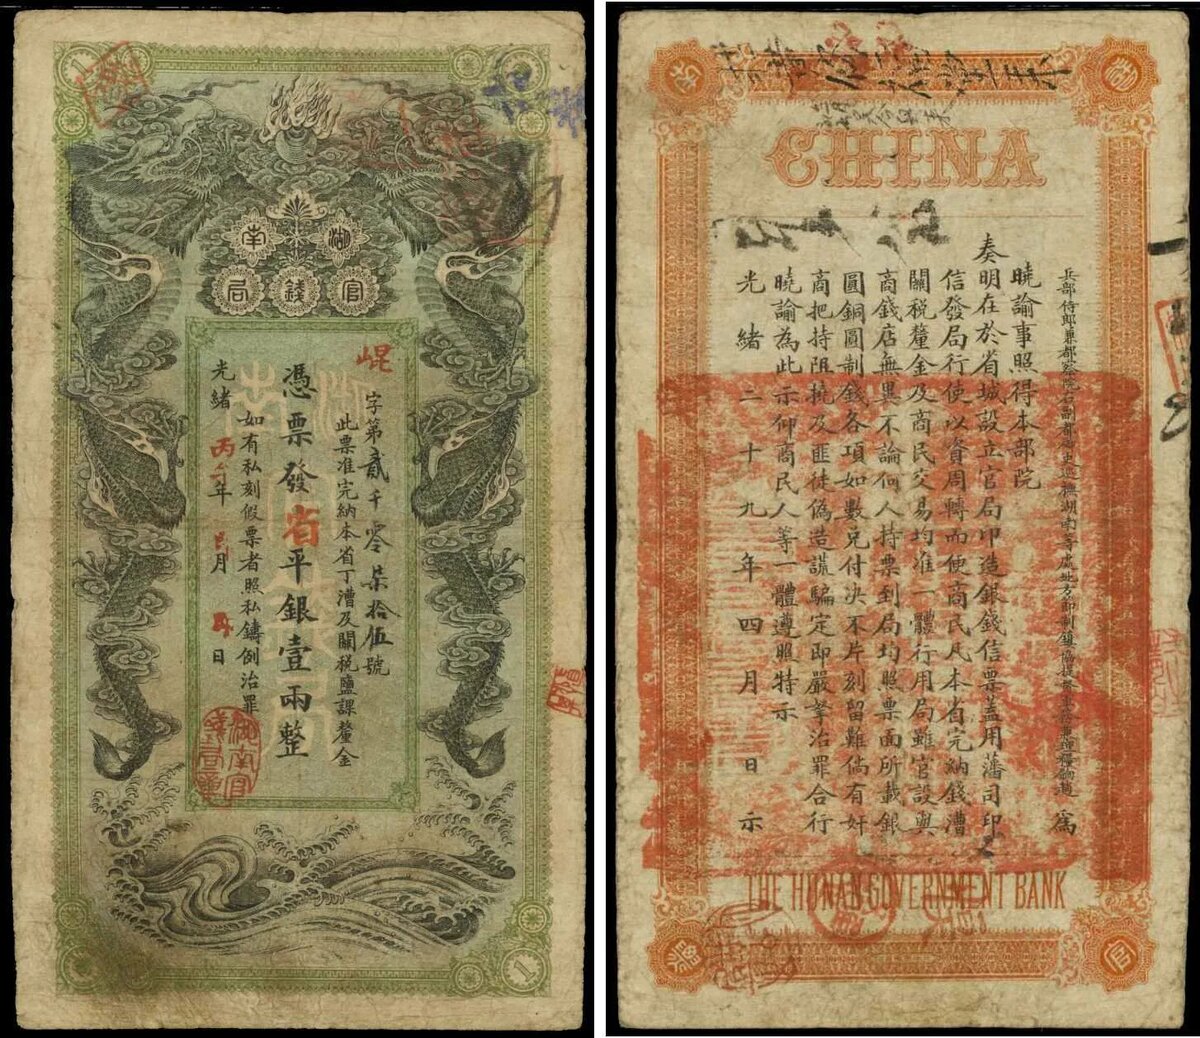 1
1
湖南
官錢局
崐
字第貳千零柒拾伍號
此票准完納本省丁漕及關稅鹽課釐金
憑票發省平銀壹兩整
如有私刻假票者照私鑄倒治罪
光緒丙午年 月 日
湖南官錢局
1
CHINA
兵部侍郎兼都察院右副都御史巡撫湖南等處地方節制鎮協提督軍務兼理糧餉趙 為
曉諭事照得本部院
奏明在於省城設立官局印造銀錢信票蓋用藩司印
信發局行使以資周轉而便商民凡本省完納錢漕
關稅釐金及商民交易均准一體行用局雖官設與
商錢店無異不論何人持票到局均照票面所載銀
圓銅圓制錢各項如數兌付決不片刻留難倘有奸
商把持阻撓及匪徒偽造謊騙定即嚴拏治罪合行
曉諭為此示仰商民人等一體遵照特示
光緒二十九年四月 日示
THE HUNAN GOVERNMENT BANK
官